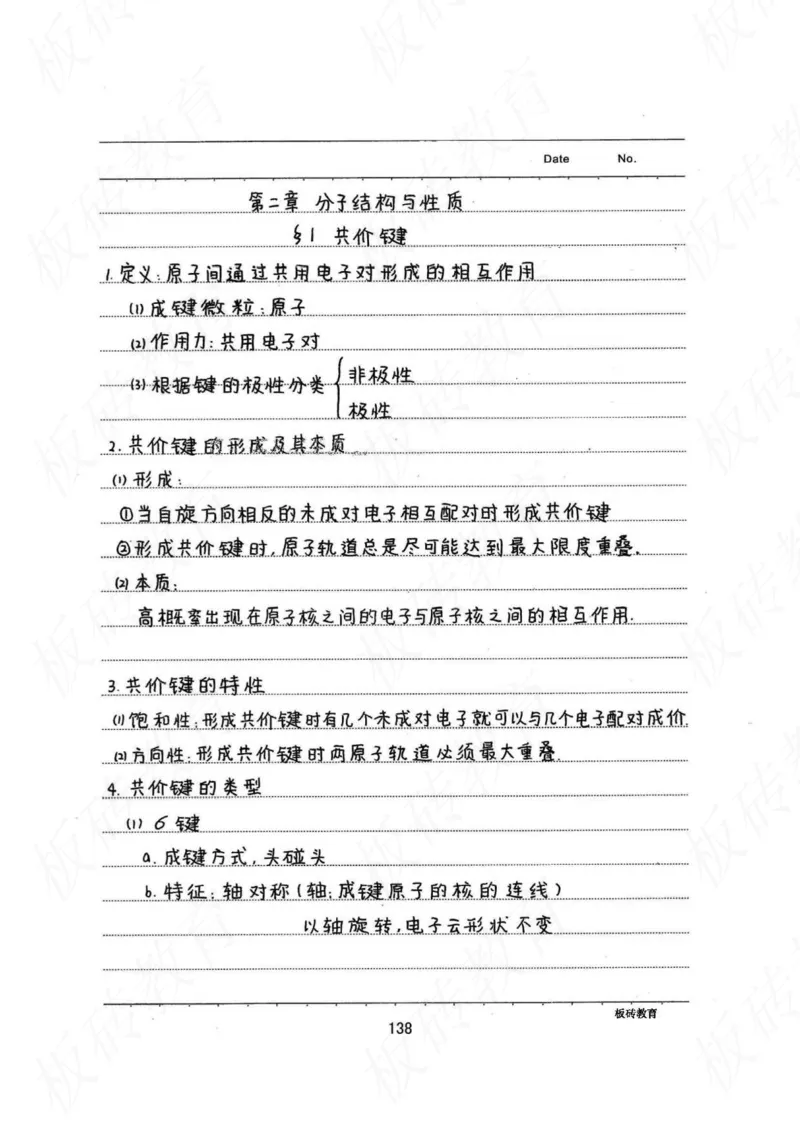 Date No.
第二章 分子结构与性质
§1 共价键
1. 定义: 原子间通过共用电子对形成的相互作用
(1) 成键微粒: 原子
(2) 作用力: 共用电子对
(3) 根据键的极性分类 { 非极性
极性
2. 共价键的形成及其本质
(1) 形成:
①当自旋方向相反的未成对电子相互配对时形成共价键
②形成共价键时, 原子轨道总是尽可能达到最大限度重叠.
(2) 本质:
高概率出现在原子核之间的电子与原子核之间的相互作用.
3. 共价键的特性
(1) 饱和性: 形成共价键时有几个未成对电子就可以与几个电子配对成价.
(2) 方向性: 形成共价键时两原子轨道必须最大重叠.
4. 共价键的类型
(1) 6 键
a. 成键方式, 头碰头
b. 特征: 轴对称 (轴: 成键原子的核的连线)
以轴旋转, 电子云形状不变
板砖教育
138